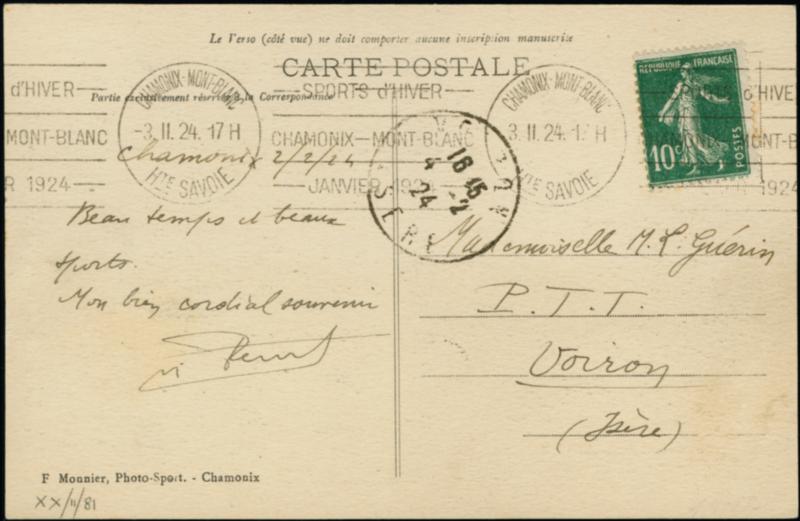 Le Verso (côté vue) ne doit comporter aucune inscription manuscrite
CARTE POSTALE
Partie exclusivement réservée à la Correspondance
d'HIVER
MONT-BLANC
1924
CHAMONIX-MONT-BLANC
-3.II.24.17H
HTE SAVOIE
SPORTS d'HIVER
CHAMONIX-MONT-BLANC
JANVIER 1924
CHAMONIX-MONT-BLANC
3.II.24.17H
HTE SAVOIE
SPORTS d'HIVER
CHAMONIX MONT-BLANC
1924
REPUBLIQUE FRANÇAISE
10c
POSTES
16 45
4 -2
24
ISERE
Chamonix 2/2/24
Beau temps et beaux
sports.
Mon bien cordial souvenir
Mademoiselle M. L. Guérin
P. T. T.
Voiron
(Isère)
F Monnier, Photo-Sport. - Chamonix
XX/11/81